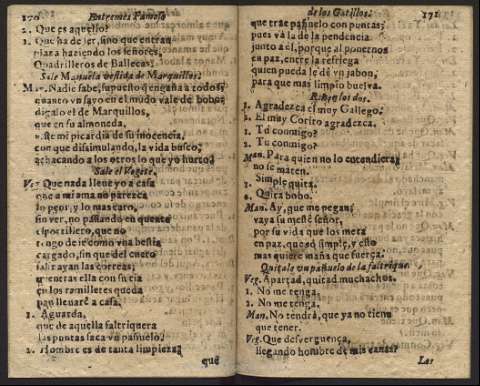 170 Entremes Famoso
2. Que es aquello?
1. Que ha de ser, sino que entran
plaza haziendo los señores,
Quadrilleros de Ballecas.
Sale Manuela vestida de Marquillos.
Man. Nadie sabe, supuesto q engaña a todos,
quanto vn sayo en el mudo vale de bobos
digalo el de Marquillos,
que en su almoneda.
este mi picardia de su inocencia,
con que dissimulando, la vida busco,
achacando a los otros lo que yo hurto,
Sale el Vegete.
Veg Que nada lleue yo a casa
que a mi ama no parezca
lo peor, y lo mas caro,
sin ver, no passando en quenta
el portillero, que no
tengo de ir como vna bestia
cargado, sin que del cueto
salir ayan las correas;
mientras ella con su tia
en los ramilletes queda
pan lleuarè a casa,
1. Aguarda,
que de aquella faltriquera
las puntas saca vn pañuelo,
2. Hombre es de tanta limpieza,
que
de los Gatillos. 171
que trae pañuelo con puntas,
pues và la de la pendencia
junto a èl, porque al ponernos
en paz, entre la refriega
quien pueda le dè vn jabon,
para que mas limpio buelva.
Riñen los dos.
1. Agradezca el muy Gallego.
2. El muy Corito agradezca.
1. Tu conmigo?
2. Tu conmigo?
Man. Para quien no lo entendiera,
no se maten.
1. Simple quita.
2. Quita bobo.
Man. Ay, que me pegan,
vaya su mesté señor,
por su vida que los meta
en paz, que so simpre, y esto
mas quiere maña que fuerça.
Quitale un pañuelo de la faltriquera
Veg. Apartad, quitad muchachos.
1. No me tenga.
2. No me tenga.
Man. No tendrá, que ya no tiene
que tener.
Veg. Que desverguença,
llegando hombre de mis canas?
Las